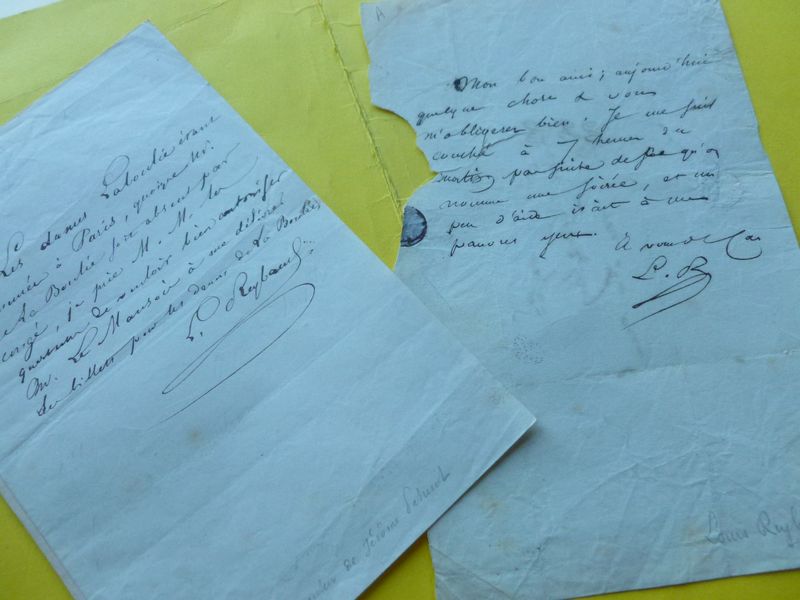 Les dames Laboulie étant
à Paris, quoique Mr.
de La Boulie soit absent par
congé, je prie M. M. les
questeurs de vouloir bien autoriser
M. Le Mansois à me délivrer
des billets pour les dames de La Boulie
L. Reybaud
de Jérôme
A
Mon bon ami, aujourd'hui
quelque chose & vous
m'obligerez bien. Je me suis
couché à 7 heures du
matin par suite de ce qu'on
nomme une soirée, et un
peu d'aide irait à mes
pauvres yeux.
À vous de
L. R
Louis Reyb